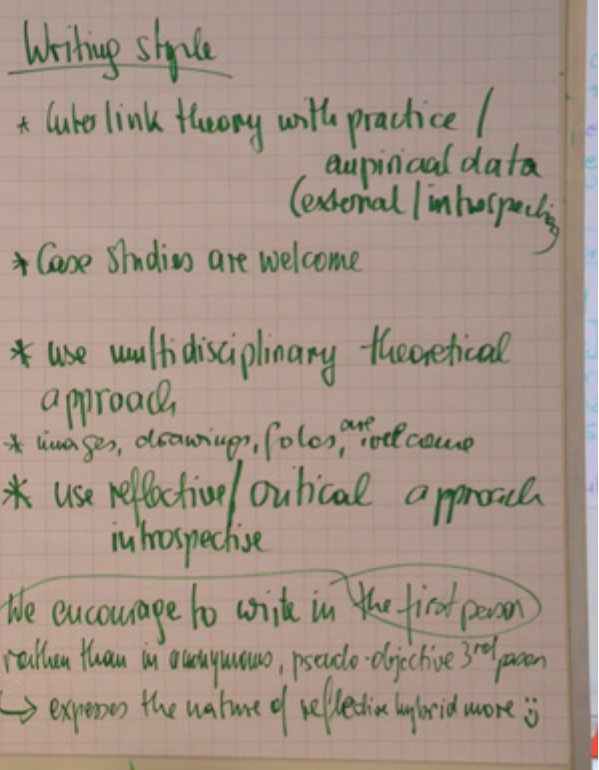 Writing style
* Interlink theory with practice /
aupiricaal data
(external / introspection
* Case Studies are welcome
* use multidisciplinary theoretical
approach
* images, drawings, fotos, are welcome
* use reflective / critical approach
introspective
We encourage to write in the first person
rathen than in anonymous, pseudo-objective 3rd person
↳ expresses the nature of reflective hybrid more ü